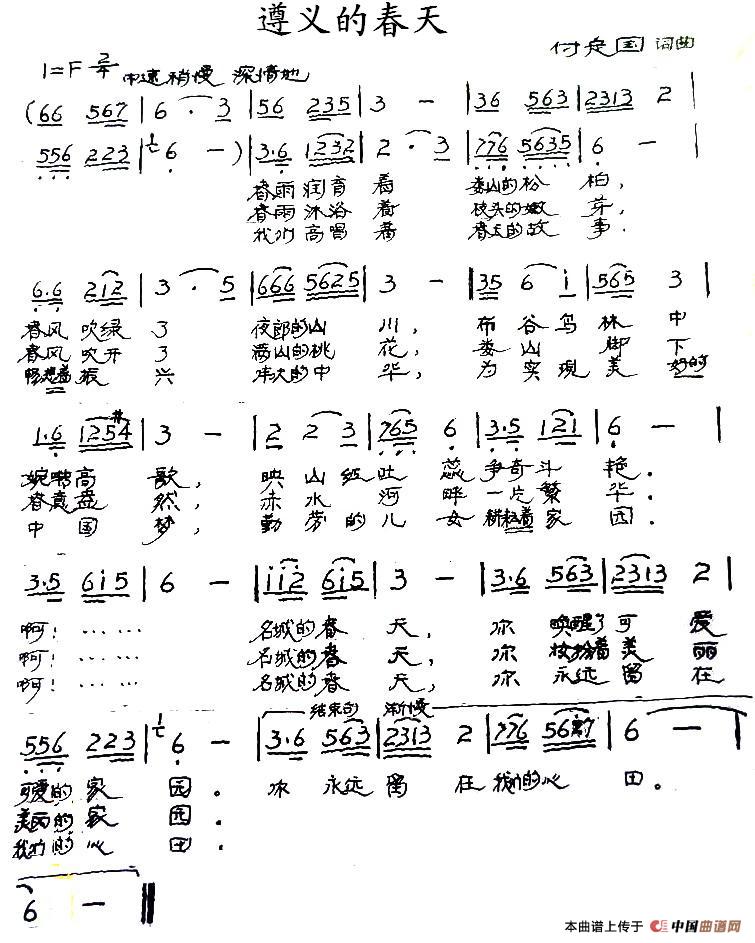 遵义的春天
付定国 词曲
1=F 2/4 中速稍慢 深情地
(66 567 | 6 · 3 | 56 235 | 3 － | 36 563 | 2313 2 |
556 223 | 6 － ) | 3·6 1232 | 2 · 3 | 776 5635 | 6 － |
春雨润育着 娄山的松柏,
春雨沐浴着 枝头的嫩芽,
我们高唱着 春天的故事.
6·6 212 | 3 · 5 | 666 5625 | 3 － | 35 6 i | 565 3 |
春风吹绿了 夜郎的山川, 布谷鸟林中
春风吹开了 满山的桃花, 娄山脚下
畅想着振兴 伟大的中华, 为实现美好的
1·6 1254 | 3 － | 2 2 3 | 765 6 | 3·5 121 | 6 － |
婉啭高歌, 映山红吐蕊争奇斗艳.
春意盎然, 赤水河畔一片繁华.
中国梦, 勤劳的儿女耕耘着家园.
3·5 6i5 | 6 － | ii2 6i5 | 3 － | 3·6 563 | 2313 2 |
啊! …… 名城的春天, 你唤醒了可爱
啊! …… 名城的春天, 你妆扮着美丽
啊! …… 名城的春天, 你永远留在
结束句 渐慢
556 223 | 6 － | 3·6 563 | 2313 2 | 776 5637 | 6 － |
可爱的家园. 你永远留在我们的心田.
美丽的家园.
我们的心田.
6 － ‖
本曲谱上传于 中国曲谱网